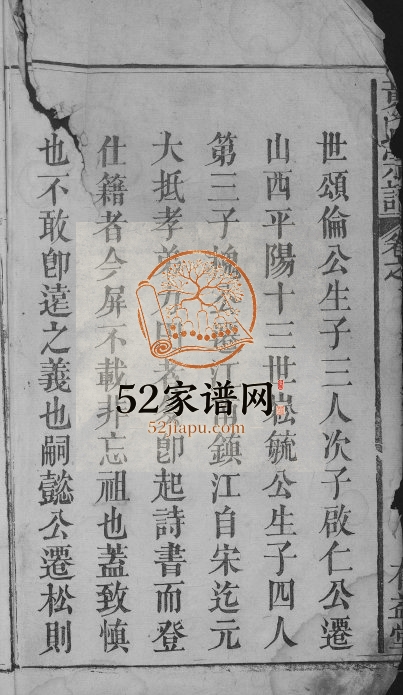 卷之
世頌倫公生子三人次子啟仁公遷
山西平陽十三世崧毓公生子四人
第三子公遷江鎮江自宋迄元
大抵孝弟力田者卽起詩書而登
仕籍者今屏不載非忘祖也蓋致慎
也不敢卽逺之義也嗣懿公遷松則
52家谱网
52jiapu.com